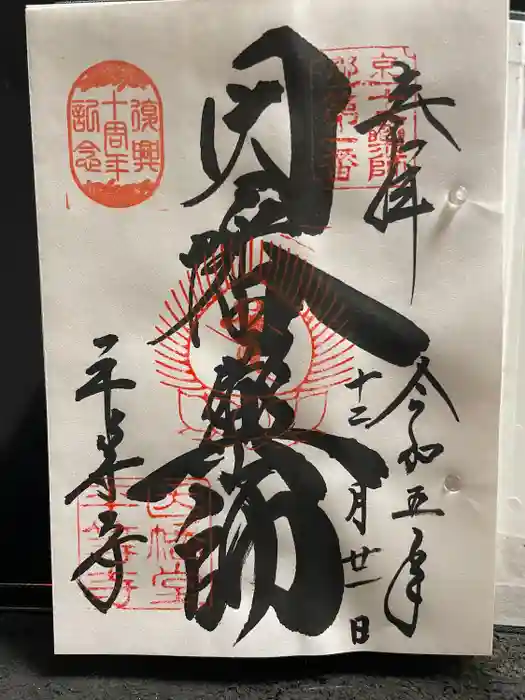 奉拝
京十二薬師
第一番
令和五年
十二月廿一日
因幡薬師
復興
十周年
記念
平等寺
因幡堂
平等寺